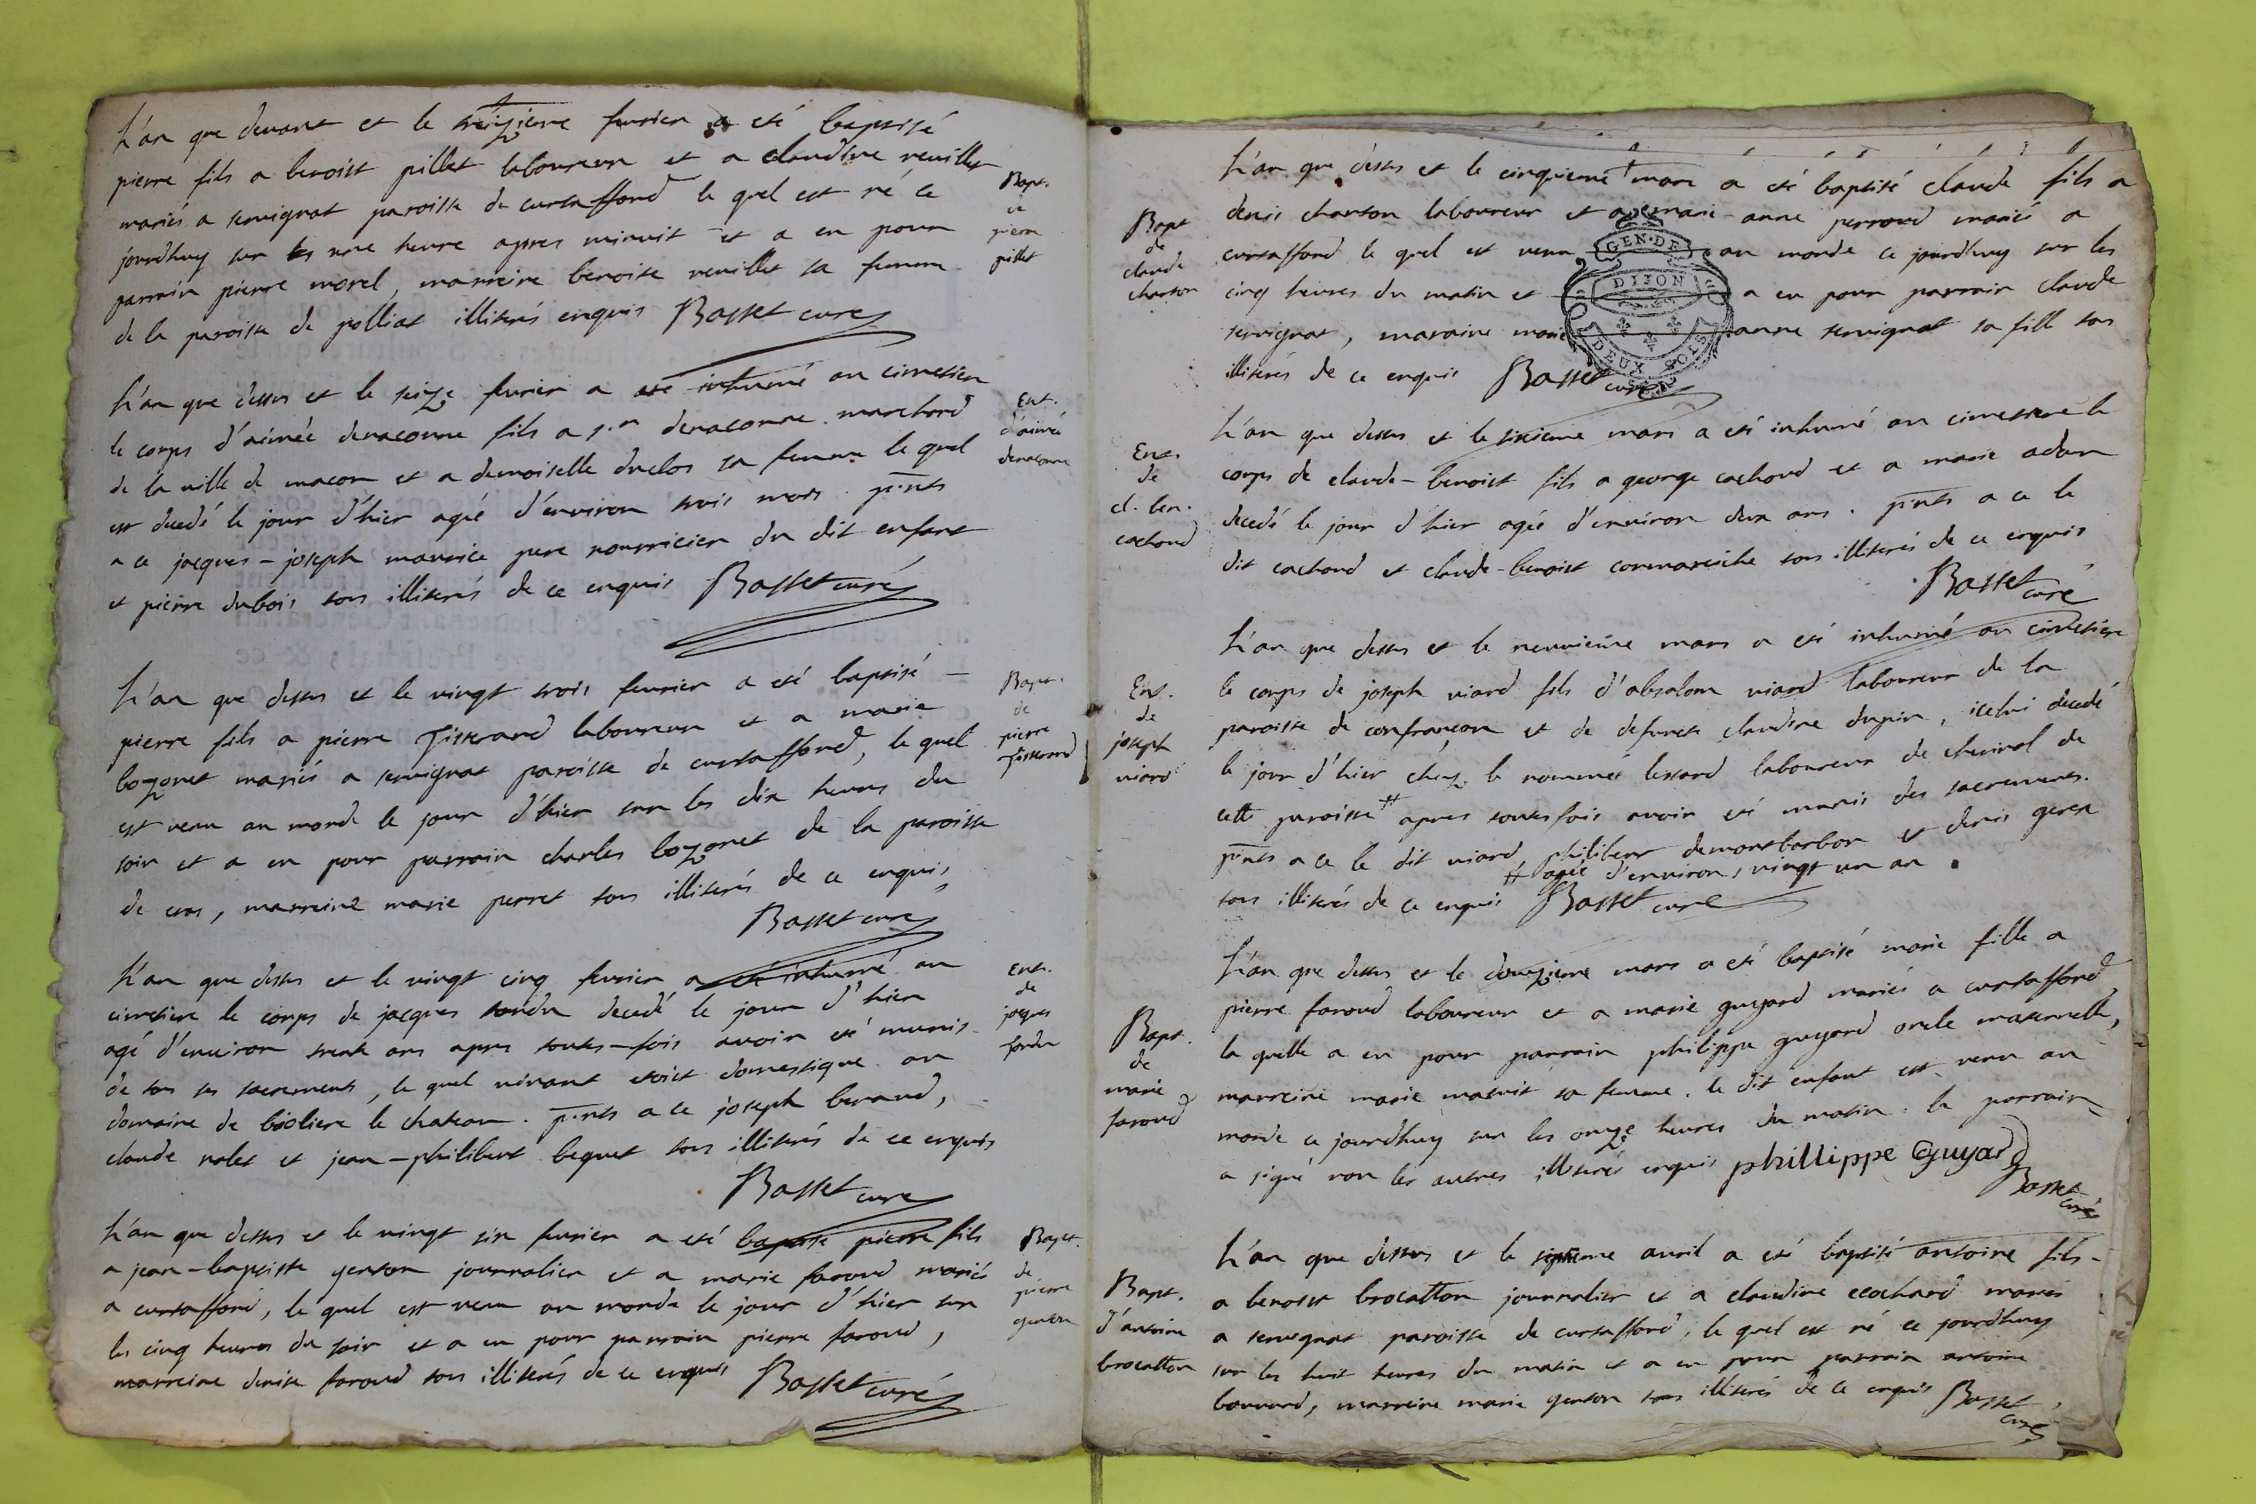 L'an que devant et le treizieme fevrier a eté baptisé
pierre fils a benoist pillet laboureur et a claudine veuillet
mariés a servignat paroisse de curtaffond le quel est né ce
jourdhuy sur les une heure apres minuit et a eu pour
parrain pierre morel, marreine benoite veuillet sa femme
de la paroisse de polliat illiterés enquis Basset curé
Bapt.
de
pierre
pillet
L'an que dessus et le seize fevrier a eté inhumé au cimetiere
le corps d'aimée fils a Sr marchand
de la ville de macon et a demoiselle duclos sa femme le quel
est decedé le jour d'hier agé d'environ trois mois. pnts
a ce jacques-joseph maurice pere nourricier du dit enfant
et pierre dubois tous illiterés de ce enquis Basset curé
Ent.
d'aimée
L'an que dessus et le vingt trois fevrier a eté baptisé
pierre fils a pierre Tisserand laboureur et a marie
bozonet mariés a servignat paroisse de curtaffond, le quel
est venu au monde le jour d'hier sur les dix heures du
soir et a eu pour parrain charles bozonet de la paroisse
de cras, marreine marie perret tous illiterés de ce enquis
Basset curé
Bapt.
de
pierre
Tisserand
L'an que dessus et le vingt cinq fevrier a eté inhumé au
cimetiere le corps de jacques decedé le jour d'hier
agé d'environ trente ans apres toutes-fois avoir eté munis
de tous ses sacrements, le quel vivant etoit domestique au
domaine de bioliere le chateau. pnts a ce joseph beraud,
claude nolet et jean-philibert bequet tous illiterés de ce enquis
Basset curé
Ent.
de
jacques
L'an que dessus et le vingt six fevrier a eté baptisé pierre fils
a jean-baptiste genton journalier et a marie faroud mariés
a curtaffond, le quel est venu au monde le jour d'hier sur
les cinq heures du soir et a eu pour parrain pierre faroud,
marreine denise faroud tous illiterés de ce enquis Basset curé
Bapt.
de
pierre
genton
L'an que dessus et le cinquieme mars a eté baptisé claude fils a
denis charton laboureur et a marie-anne perroud mariés a
curtaffond le quel est venu au monde ce jourdhuy sur les
cinq heures du matin et a eu pour parrain claude
servignat, maraine marie anne servignat sa fille tous
illiterés de ce enquis Basset curé
Bapt
de
claude
charton
GEN. DE
DIJON
DEUX SOLS
L'an que dessus et le sixieme mars a eté inhumé au cimettere le
corps de claude-benoist fils a george cachoud et a marie adam
decedé le jour d'hier agée d'environ deux ans. pnts a ce le
dit cachoud et claude-benoist tous illiterés de ce enquis
Basset curé
Ent.
de
cl. ben.
cachoud
L'an que dessus et le neuvieme mars a eté inhumé au cimetiere
le corps de joseph viard fils d'absalon viard laboureur de la
paroisse de confrançon et de defuncte claudine dupin, icelui decedé
le jour d'hier chez le nommé lessard laboureur de chevirol de
cette paroisse # apres toutesfois avoir eté munis des sacrements.
pnts a ce le dit viard, philibert demontbarbon et denis
# agée d'environ vingt un an.
tous illiterés de ce enquis Basset curé
Ent.
de
joseph
viard
L'an que dessus et le douzieme mars a eté baptisé marie fille a
pierre faroud laboureur et a marie guyard mariés a curtaffond
la quelle a eu pour parrain philippe guyard oncle maternelle,
marreine marie sa femme. le dit enfant est venu au
monde ce jourdhuy sur les onze heures du matin. le parrain
a signé non les autres illiterés enquis phillippe Guyard
Basset
curé
Bapt.
de
marie
faroud
L'an que dessus et le avril a eté baptisé antoine fils
a benoist brocatton journalier et a claudine ecochard mariés
a servignat paroisse de curtaffond, le quel est né ce jourdhuy
sur les huit heures du matin et a eu pour parrain antoine
bouvard, marreine marie genton tous illiterés de ce enquis Basset
curé
Bapt.
d'antoine
brocatton